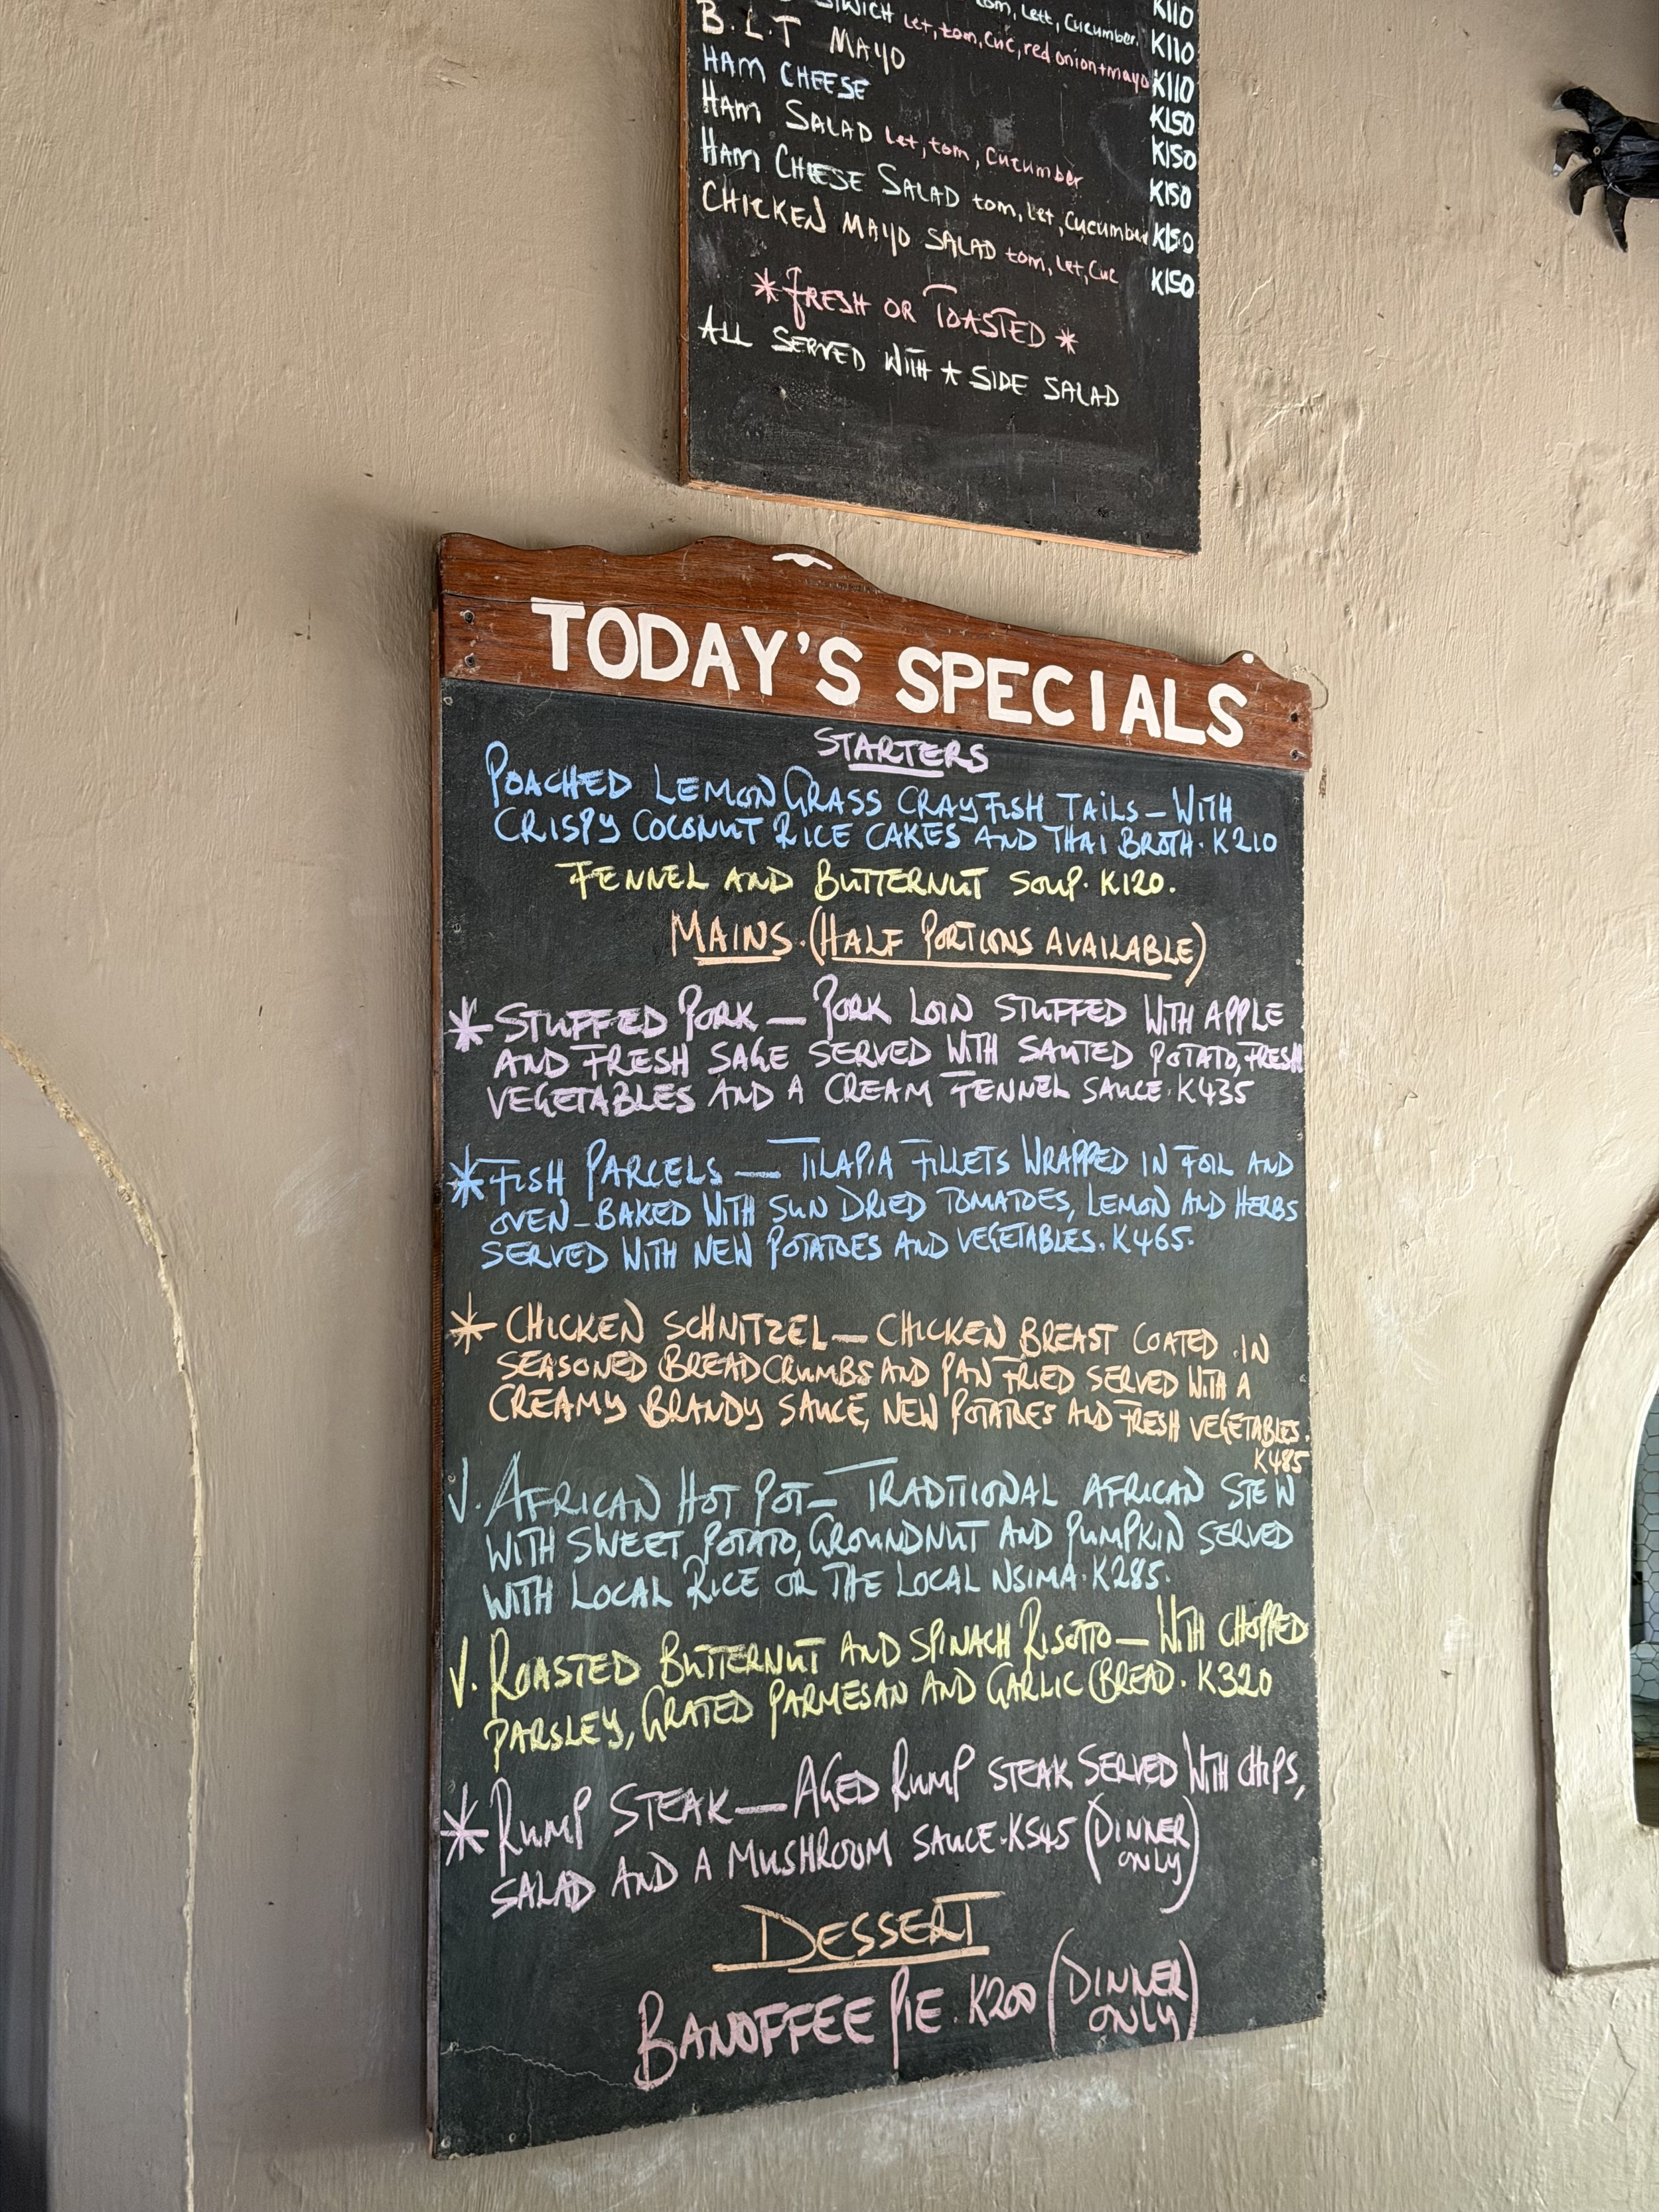 K110
tom, Lett, Cucumber. K110
Let, tom, cuc, red onion + mayo K110
B.L.T MAYO K150
HAM CHEESE K150
HAM SALAD Let, tom, Cucumber K150
HAM CHEESE SALAD tom, let, Cucumber K150
CHICKEN MAYO SALAD tom, let, cuc K150
*FRESH OR TOASTED*
ALL SERVED WITH * SIDE SALAD
TODAY'S SPECIALS
STARTERS
POACHED LEMON GRASS CRAYFISH TAILS – WITH
CRISPY COCONUT RICE CAKES AND THAI BROTH. K210
FENNEL AND BUTTERNUT SOUP. K120.
MAINS. (HALF PORTIONS AVAILABLE)
* STUFFED PORK – PORK LOIN STUFFED WITH APPLE
AND FRESH SAGE SERVED WITH SAUTED POTATO, FRESH
VEGETABLES AND A CREAM FENNEL SAUCE. K435
* FISH PARCELS – TILAPIA FILLETS WRAPPED IN FOIL AND
OVEN-BAKED WITH SUN DRIED TOMATOES, LEMON AND HERBS
SERVED WITH NEW POTATOES AND VEGETABLES. K465.
* CHICKEN SCHNITZEL – CHICKEN BREAST COATED IN
SEASONED BREADCRUMBS AND PAN FRIED SERVED WITH A
CREAMY BRANDY SAUCE, NEW POTATOES AND FRESH VEGETABLES.
K485
V. AFRICAN HOT POT – TRADITIONAL AFRICAN STEW
WITH SWEET POTATO, GROUNDNUT AND PUMPKIN SERVED
WITH LOCAL RICE OR THE LOCAL NSIMA. K285.
V. ROASTED BUTTERNUT AND SPINACH RISOTTO – WITH CHOPPED
PARSLEY, GRATED PARMESAN AND GARLIC BREAD. K320
* RUMP STEAK – AGED RUMP STEAK SERVED WITH CHIPS,
SALAD AND A MUSHROOM SAUCE. K545 (DINNER
ONLY)
DESSERT
BANOFFEE PIE. K200 (DINNER
ONLY)